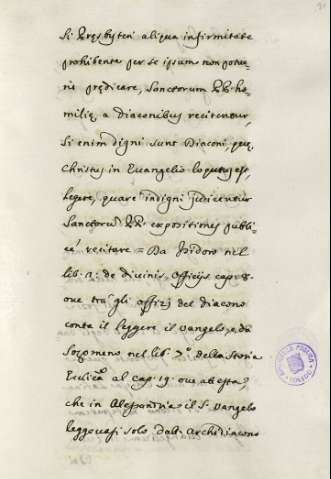 Si Presbyteri aliqua infirmitate
prohibente per se ipsum non potue-
rit prędicare, Sanctorum PP. ho-
milię a diaconibus recitentur,
Si enim digni sunt Diaconi, quę
Christus in Evangelio loquutus est,
legere, quare indigni judicentur
Sanctorum PP. expositiones publi-
cè recitare = Da Isidoro nel
lib. 2. de divinis officijs cap. 8.
ove trà gli offizj del diacono
conta il leggere il vangelo, e da
Sozomano nel lib. 7.º della Storia
Ecclica al cap. 19. ove attesta,
che in Alessandria il S. vangelo
leggevasi solo dall' Archidiacono